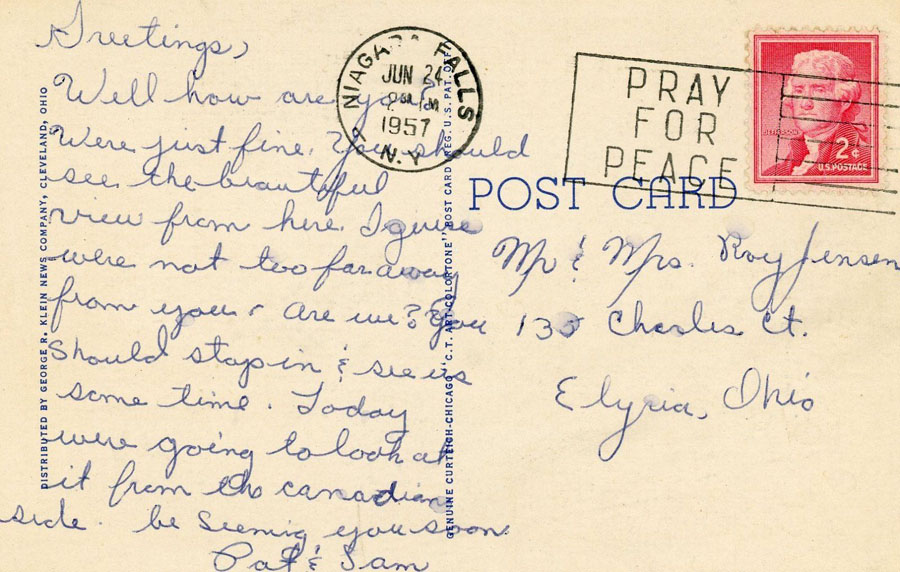 Greetings,
Well how are you?
Were just fine. You should
see the beautoful
view from here. I guess
were not too far away
from you r are we? You
should stop in & see us
some time. Today
were going to look at
it from the canadian
side. be Seeing you soon
Pat & Sam
NIAGARA FALLS
JUN 24
PM
1957
N.Y.
PRAY
FOR
PEACE
JEFFERSON
2¢
U.S. POSTAGE
POST CARD
Mr & Mrs. Roy Jensen
135 Charles Ct.
Elyria, Ohio
DISTRIBUTED BY GEORGE R. KLEIN NEWS COMPANY, CLEVELAND, OHIO
GENUINE CURTEICH-CHICAGO "C.T. ART-COLORTONE" POST CARD (REG. U.S. PAT. OFF.)